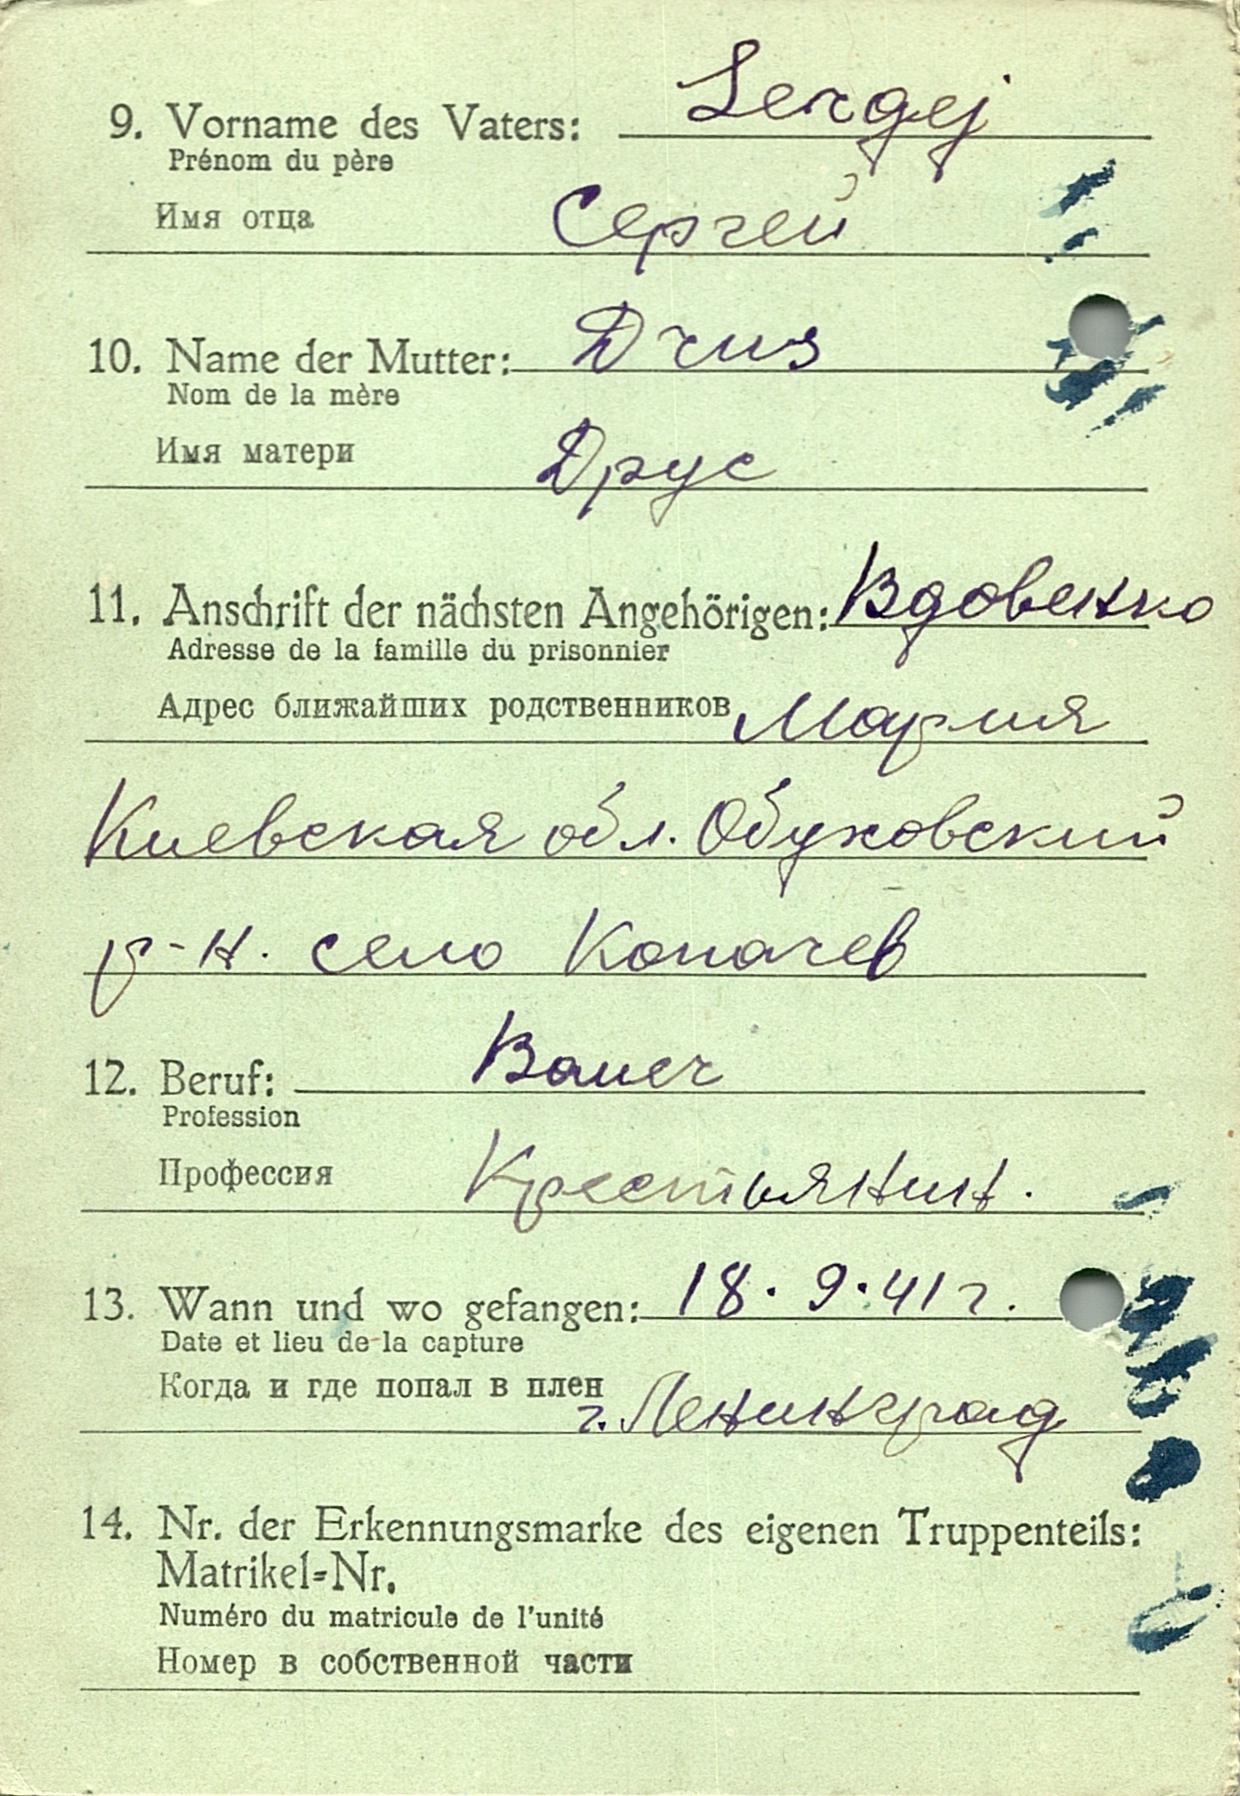 9. Vorname des Vaters: Sergej
Prénom du père
Имя отца Сергей
10. Name der Mutter: Drus
Nom de la mère
Имя матери Друс
11. Anschrift der nächsten Angehörigen: Вдовенко
Adresse de la famille du prisonnier
Адрес ближайших родственников Мария
Киевская обл. Обуховский
р-н. село Копачев
12. Beruf: Bauer
Profession
Профессия Крестьянин.
13. Wann und wo gefangen: 18. 9. 41 г.
Date et lieu de la capture
Когда и где попал в плен
г. Ленинград
14. Nr. der Erkennungsmarke des eigenen Truppenteils:
Matrikel-Nr.
Numéro du matricule de l'unité
Номер в собственной части